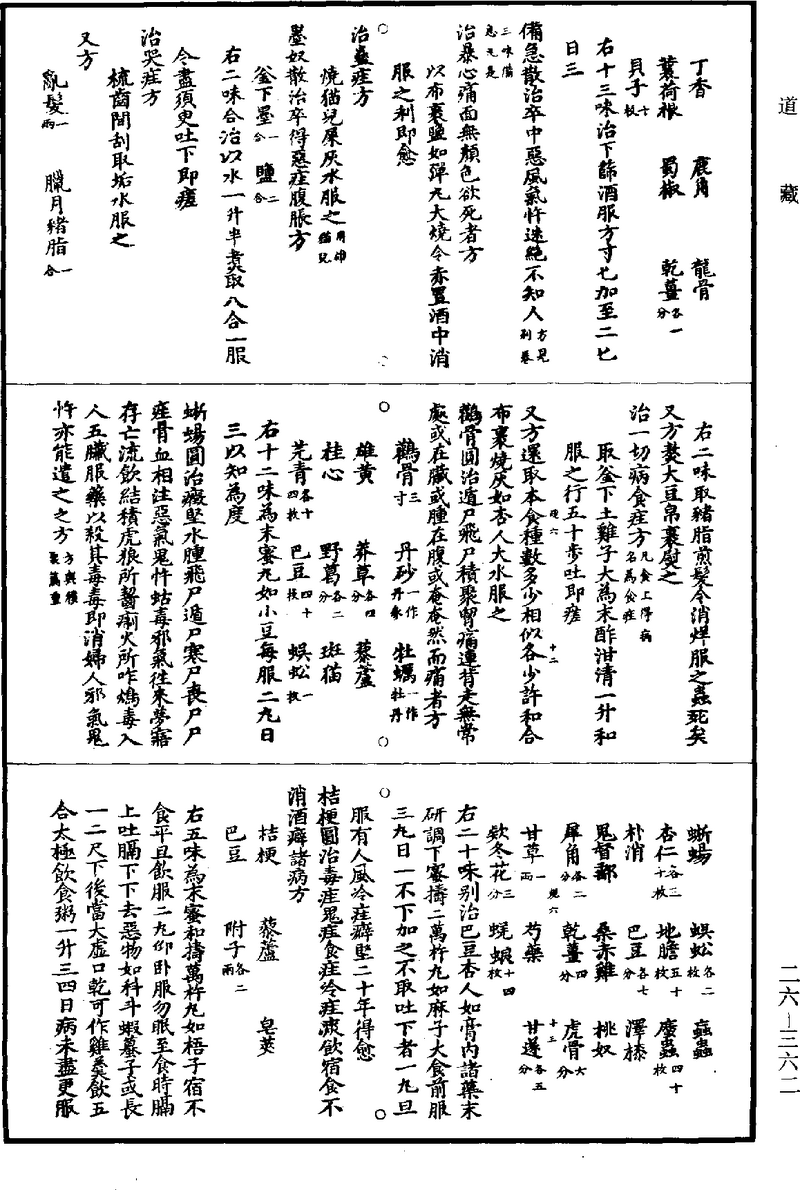 道藏
丁香　鹿角　龍骨
蘘荷根　蜀椒　乾薑各一分
貝子十枚
右十三味治下篩酒服方寸匕加至二匕
日三
備急散治卒中惡風氣忤迷絕不知人方見別卷
三味備急丸是
治暴心痛面無顏色欲死者方
以布裹鹽如彈丸大燒令赤置酒中消
服之利即愈
治蠱疰方
燒猫兒屎灰水服之用雄猫兒
墨奴散治卒得惡疰腹脹方
釜下墨一合　鹽二合
右二味合治以水一升半煮取八合一服
令盡須臾吐下即瘥
治哭疰方
梳齒間刮取垢水服之
又方
亂髮一兩　臘月豬脂一合
右二味取豬脂煎髮令消烊服之蟲死矣
又方熬大豆帛裹熨之
治一切病食疰方凡食上得病名為食疰
取釜下土雞子大為末酢泔清一升和
服之行五十步吐即瘥
又方還取本食種數多少相似各少許和合
布裹燒灰如杏人大水服之
鸛骨圓治遁尸飛尸積聚胷痛連背走無常
處或在臟或腫在腹或奄奄然而痛者方
鸛骨三寸　丹砂一作丹參　牡蠣一作牡丹
雄黃　莽草各四分　藜蘆
桂心　野葛各二分　斑猫
芫青各十四枚　巴豆四十枚　蜈蚣一枚
右十二味為末蜜丸如小豆每服二丸日
三以知為度
蜥蜴圓治癥堅水腫飛尸遁尸寒尸喪尸尸
疰骨血相注惡氣鬼忤蛄毒邪氣徃來夢寤
存亡流飲結積虎狼所齧猘犬所咋鴆毒入
人五臟服藥以殺其毒毒即消婦人邪氣鬼
忤亦能遣之之方
蜥蜴　蜈蚣各二枚　䗪蟲
杏仁各三十枚　地膽五十枚　䗪蟲四十枚
朴消　巴豆各七分　澤漆
鬼督郵　桑赤雞　桃奴
犀角各二分　乾薑四分　虎骨六分
甘草一兩　芍藥　甘遂各五分
欵冬花三分　蜣蜋十四枚
右二十味別治巴豆杏人如膏內諸藥末
研調下蜜擣二萬杵丸如麻子大食前服
三丸日一不下加之不取吐下者一丸旦
服有人風冷疰癖堅二十年得愈
桔梗圓治毒疰鬼疰食疰冷疰痰飲宿食不
消酒癖諸病方
桔梗　藜蘆　皂莢
巴豆　附子各二兩
右五味為末蜜和擣萬杵丸如梧子宿不
食平旦飲服二丸仰卧服勿眠至食時膈
上吐膈下下去惡物如科斗蝦蟇子或長
一二尺下後當大虛口乾可作雞羹飲五
合太極飲食粥一升三四日病未盡更服
二六—三六二